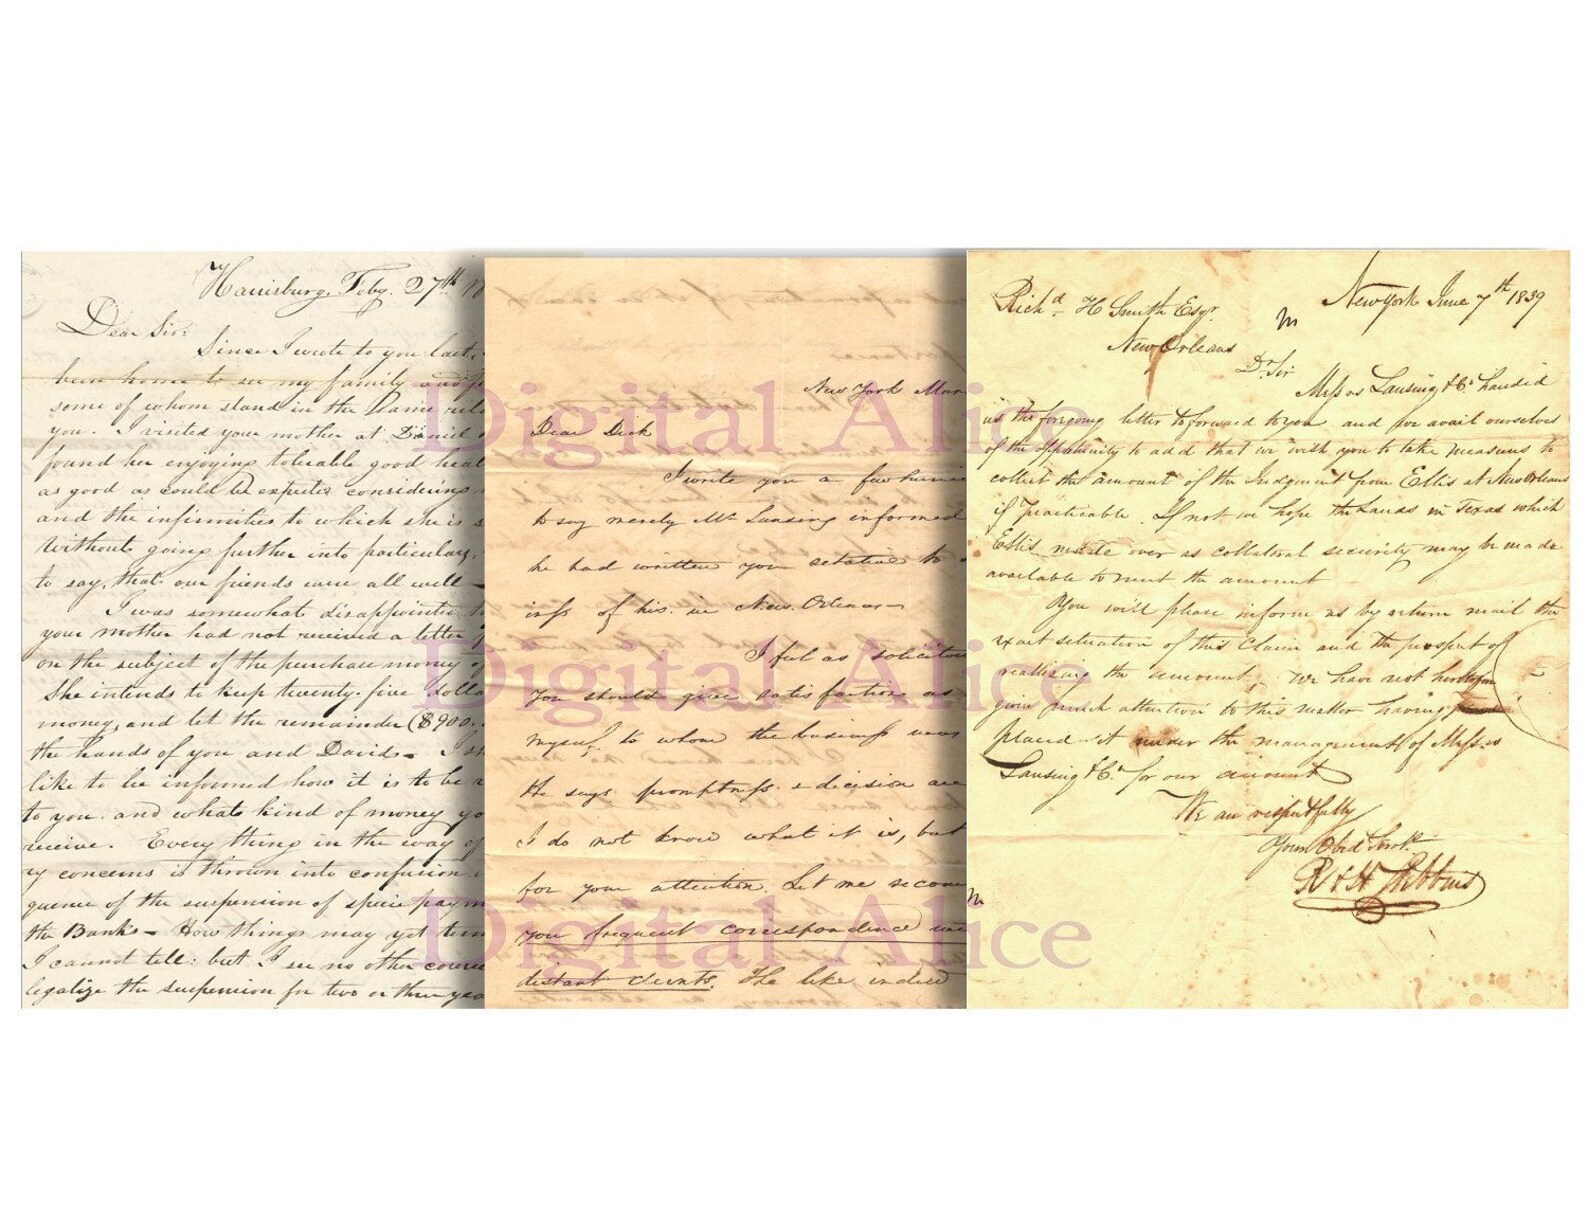 Harrisburg, Feby. 27th 18
Dear Sir:
Since I wrote to you last,
been home to see my family and
some of whom stand in the same rel
you. I visited your mother at Daniel
found her enjoying tolerable good heal
as good as could be expected considering
and the infirmities to which she is s
Without going further into particulars,
to say, that our friends were all well —
I was somewhat disappointed
your mother had not received a letter
on the subject of the purchase money of
She intends to keep twenty-five dolla
money, and let the remainder ($900.
the hands of you and David — I sh
like to be informed how it is to be
to you. and what kind of money yo
receive. Every thing in the way of
ry concerns is thrown into confusion
quence of the suspension of specie paym
the Banks — How things may yet turn
I cannot tell: but I see no other course
legalize the suspension for two or three yea
New York Mar
Dear Dick
I write you a few
to say merely Mr Lansing informed
he had written you relative to
inss of his in New Orleans —
I feel as solicitou
you should give satisfaction as
myself, to whom the business was
He says promptness & decision are
I do not know what it is, but
for your attention. Let me recom
you frequent correspondence wi
distant clients. He like indeed
New York June 7th 1839
Richd H Smith Esqr.
New Orleans
Dr Sir
Messrs Lansing & Co handed
us the foregoing letter to forward to you and we avail ourselves
of the opportunity to add that we wish you to take measures to
collect the amount of the Judgment from Ellis at New Orleans
if practicable. If not we hope the Lands in Texas which
Ellis made over as collateral security may be made
available to meet the amount
You will please inform us by return mail the
exact situation of this Claim and the prospect of
realizing the amount. We have not heretofore
given much attention to this matter having
placed it under the management of Messrs
Lansing & Co for our account
We are respectfully
Your Obed Servts
R & H
Digital Alice
Digital Alice
Digital Alice